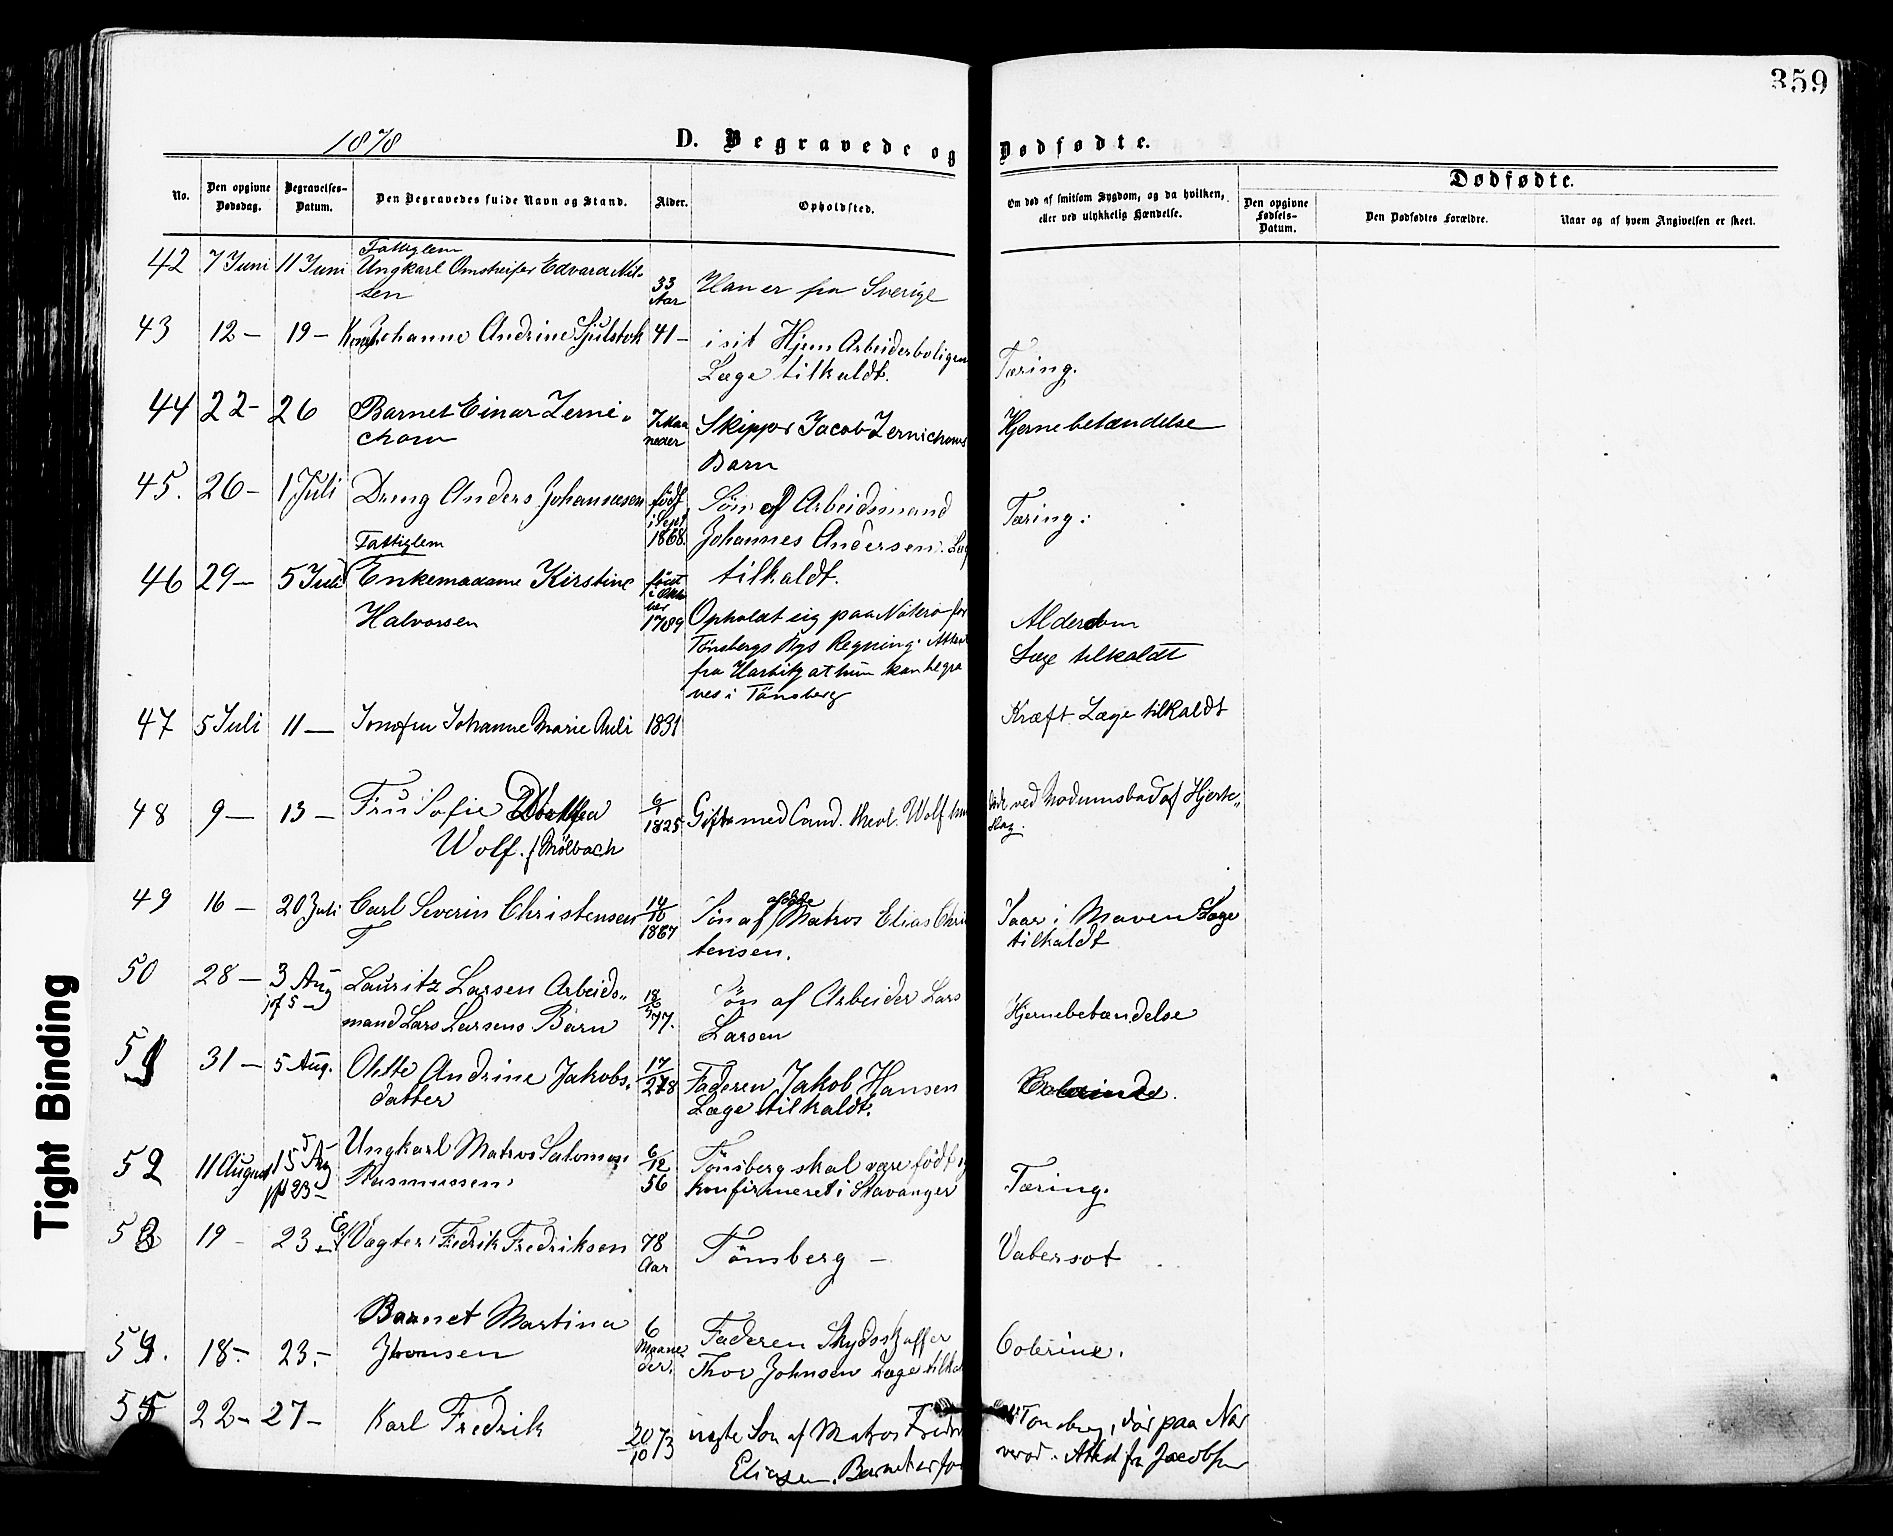 359
1878
D. Begravede og Dødfødte.
No.
Den opgivne Dødsdag.
Begravelses-Datum.
Den Begravedes fulde Navn og Stand.
Alder.
Opholdsted.
Om død af smitsom Sygdom, og da hvilken, eller ved ulykkelig Hændelse.
Dødfødte.
Den opgivne Fødsels-Datum.
Den Dødfødtes Forældre.
Naar og af hvem Angivelsen er skeet.
Fattiglem
42 7 Juni 11 Juni Ungkarl Edvard Nil-
sen 33 Aar Han er fra Sverige
43 12 – 19 – Johanne Andrine 41 – i sit Hjem Arbeiderboligen
Læge tilkaldt. Tæring.
44 22 – 26 Barnet Einar Zerni-
chow 7 Maaneder Skipper Jacob Zernichows Hjernebetændelse
Barn
45. 26 – 1 Juli Dreng Anders Johannesen født i Sept 1868. Søn af Arbeidsmand Tæring.
Johannes Andersen.
tilkaldt.
Fattiglem
46 29 – 5 Juli Enkemadame Kirstine
Halvorsen født 1789 Opholdt sig paa Nøterø for Alderdom
Tønsbergs Bys Regning. Læge tilkaldt
fra at hun kan begra
ves i Tønsberg
47 5 Juli 11 – Jomfru Johanne Marie Auli 1831 Kræft Læge tilkaldt
48 9 – 13 – Fru Sofie
Wolf. f. Mølbach 6/1 1825 Gift med Cand. theol. Wolf ved Modumsbad af Hjerte-
slag.
49 16 – 20 Juli Carl Severin Christensen 14/10 1867 Søn af Matros Elias Chris
tensen. Saar i Maven Læge
tilkaldt
50 28 – 3 Aug
5 – Lauritz Larsen Arbeids-
mand Lars Larsens Barn 77. Søn af Arbeider Lars
Larsen Hjernebetændelse
51 31 – 5 Aug. Olette Andrine Jakobs-
datter 17/2 78 Faderen Jakob Hansen
Læge tilkaldt.
52 11 August 15 Aug
23 – Ungkarl Matros Salomon
Rasmussen 6/12 56 Tønsberg skal være født og
konfirmeret i Stavanger Tæring.
53 19 – 23 – Vægter Fredrik Fredriksen 78 Aar Tønsberg – Vatersot
54. 18 – 23. – Barnet Martina
Jhonsen 6 Maaneder. Faderen Skydsskaffer
Thor Johnsen Læge Colerine.
55 22 – 27 – Karl Fredrik 20/10 73 uægte Søn af Matros
Eliasen. Barnet er Tønsberg, død paa
Attest fra Jacobsen
Tight Binding